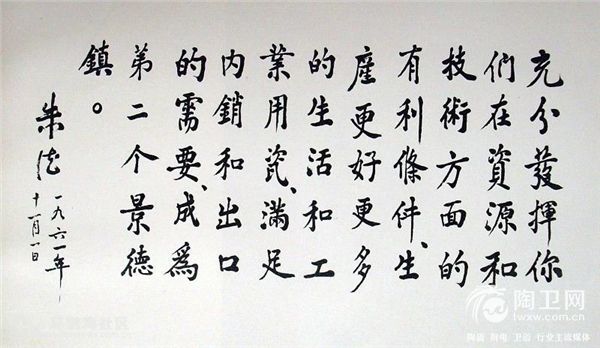 充分發揮你
們在資源和
技術方面的
有利條件、生
產更好更多
的生活和工
業用瓷、滿足
内銷和出口
的需要、成為
第二个景德
鎮。
朱德
一九六一年
十一月一日
陶卫网
www.twxw.com.cn
陶瓷 厨电 卫浴 行业主流媒体